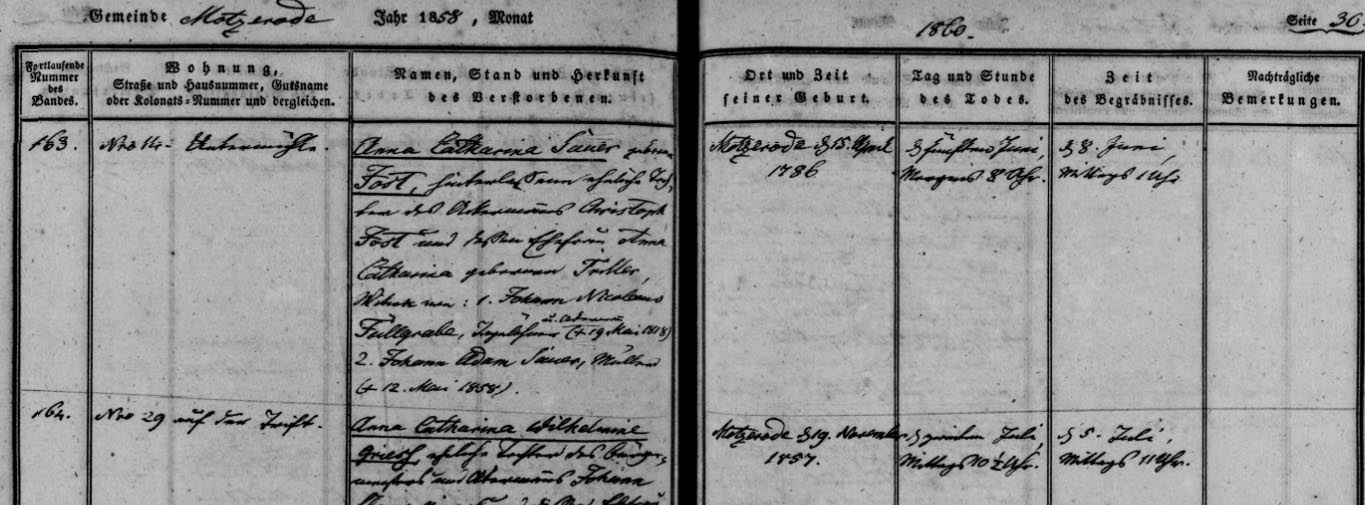 Gemeinde Motzerode Jahr 1858, Monat
1860.
Seite 36.
Fortlaufende Nummer des Bandes.
Wohnung, Straße und Hausnummer, Gutsname oder Kolonats-Nummer und dergleichen.
Namen, Stand und Herkunft des Verstorbenen.
Ort und Zeit seiner Geburt.
Tag und Stunde des Todes.
Zeit des Begräbnisses.
Nachträgliche Bemerkungen.
163.
Untermühle.
Anna Catharina Sauer geborene
Fost, hinterlassene eheliche Toch-
ter des Ackermanns Christoph
Fost und dessen Ehefrau, Anna
Catharina geborenen Triller,
Witwe von: 1. Johann Nicolaus
Füllgrabe, Tagelöhner (+ 19 Mai 1818)
2. Johann Adam Sauer, Müller
(+ 12. Mai 1858).
Motzerode d 15. April
1786
d fünften Juni,
Morgens 8 Uhr.
d 8. Juni,
Mittags 1 Uhr
164.
Nro 29 auf der Trift.
Anna Catharina Wilhelmine
Griesch, eheliche Tochter des Bürger-
meisters und Ackermanns Johann
Motzerode d 19. November
1857.
d zweiten Juli,
Mittags 10 ½ Uhr.
d 5. Juli,
Mittags 11 Uhr.